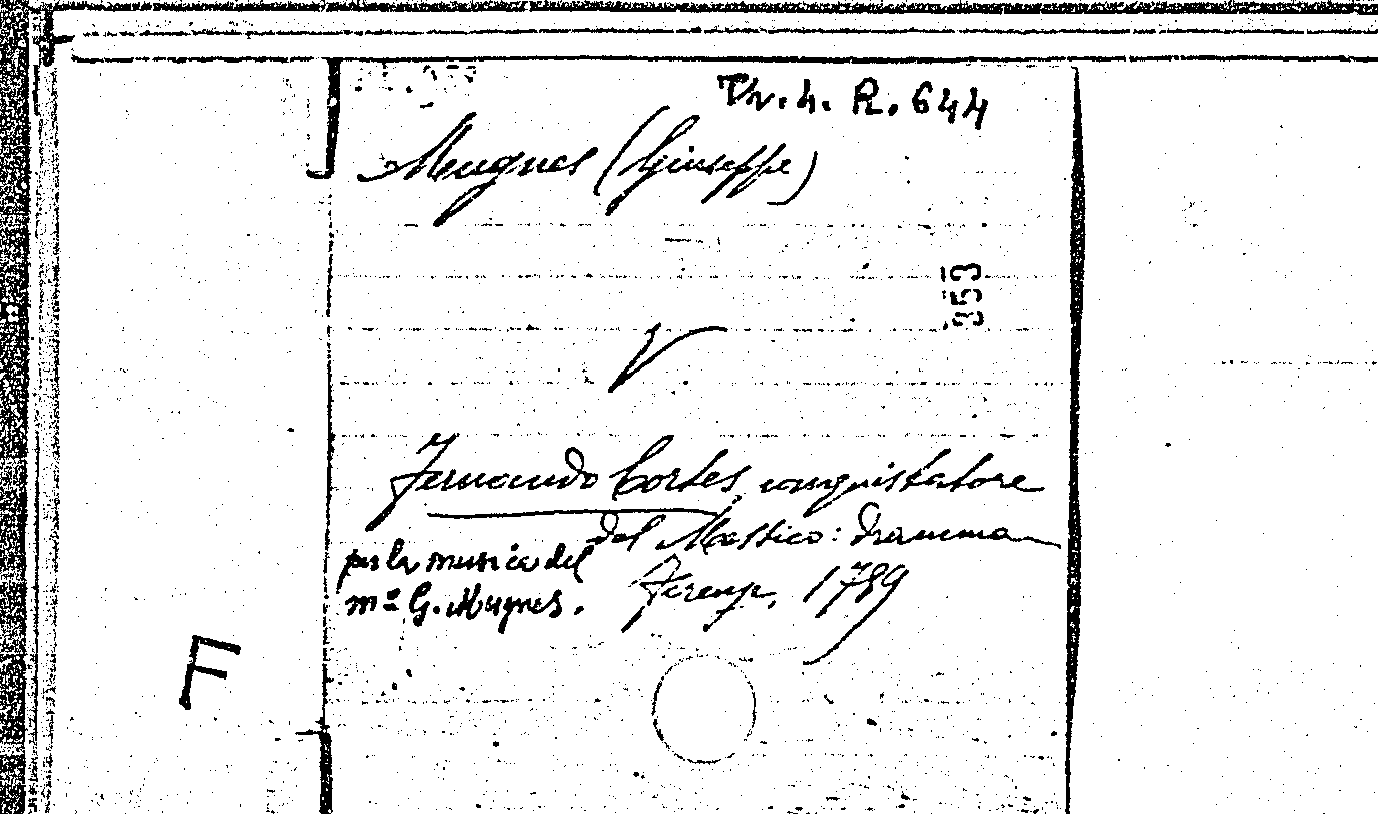 Tr. 4. R. 644
Mugnes (Giuseppe)
353
Fernando Cortes, conquistatore
del Messico: dramma
per la musica del
mº G. Mugnes.
Firenze, 1789
F